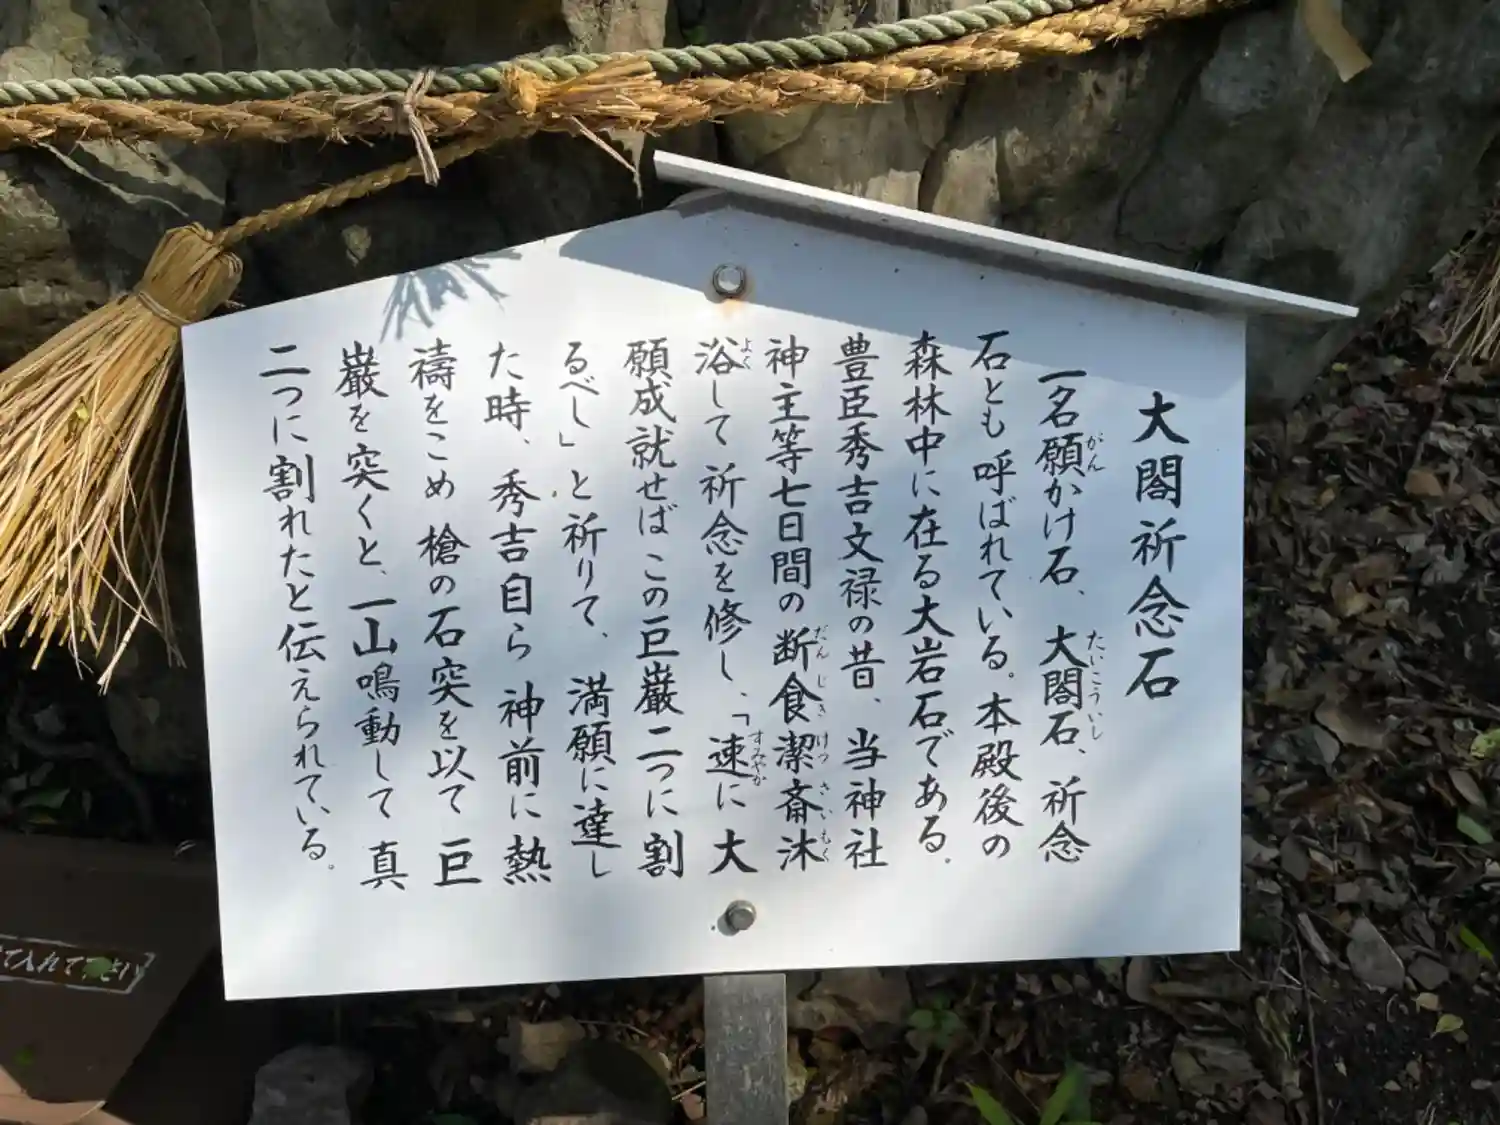 大閤祈念石
一名願かけ石、大閤石、祈念
がん
たいこういし
石とも呼ばれている。本殿後の
森林中に在る大岩石である。
豊臣秀吉文禄の昔、当神社
神主等七日間の断食潔斎沐
だんじき けつさいもく
浴して祈念を修し、「速に大
よく
すみやか
願成就せばこの巨巌二つに割
るべし」と祈りて、満願に達し
た時、秀吉自ら神前に熱
禱をこめ槍の石突を以て巨
巌を突くと、一山鳴動して真
二つに割れたと伝えられている。